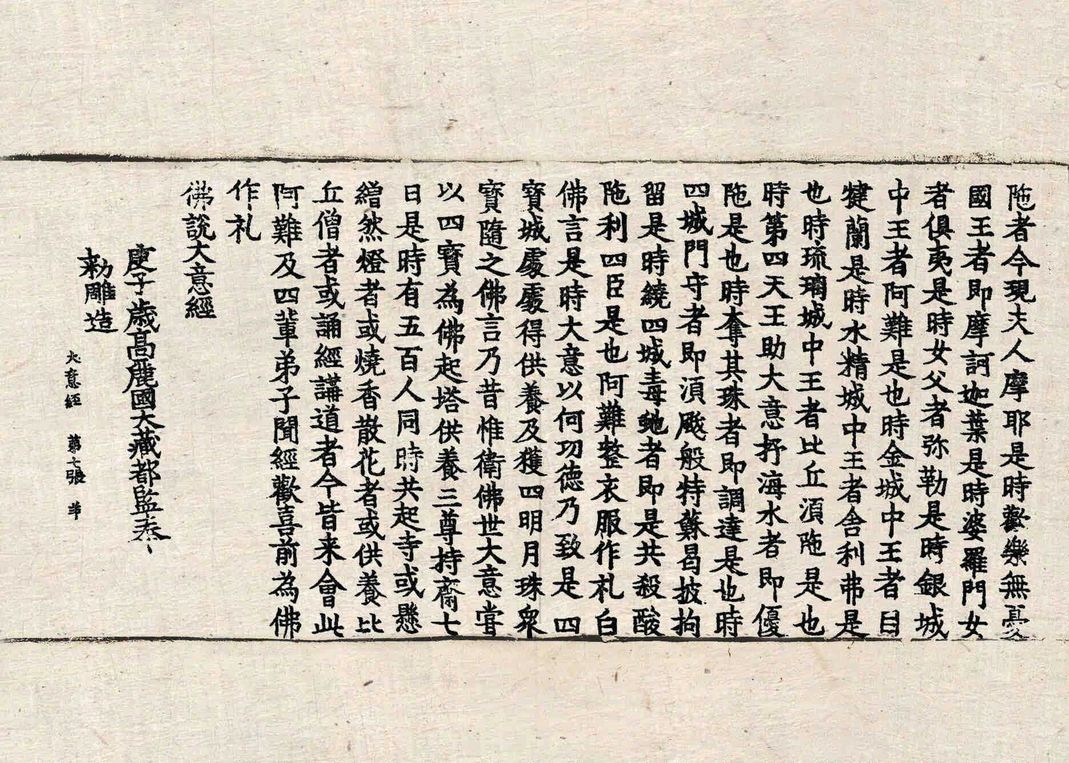 陁者今現夫人摩耶是時歡樂無憂
國王者即摩訶迦葉是時婆羅門女
者俱夷是時女父者弥勒是時銀城
中王者阿難是也時金城中王者目
犍蘭是時水精城中王者舎利弗是
也時琉璃城中王者比丘湏陁是也
時第四天王助大意抒海水者即優
陁是也時奪其珠者即調達是也時
四城門守者即湏颰般特蘇曷披拘
留是時繞四城毒虵者即是共殺酸
陁利四臣是也阿難整衣服作礼白
佛言是時大意以何功德乃致是四
寳城處處得供養及獲四明月珠衆
寳隨之佛言乃昔惟衛佛世大意甞
以四寳為佛起塔供養三尊持齋七
日是時有五百人同時共起寺或懸
繒然燈者或燒香散花者或供養比
丘僧者或誦經講道者今皆来會此
阿難及四輩弟子聞經歡喜前為佛
作礼
佛說大意經
庚子歳髙麗國大藏都監奉
勑雕造
大意經 第七張